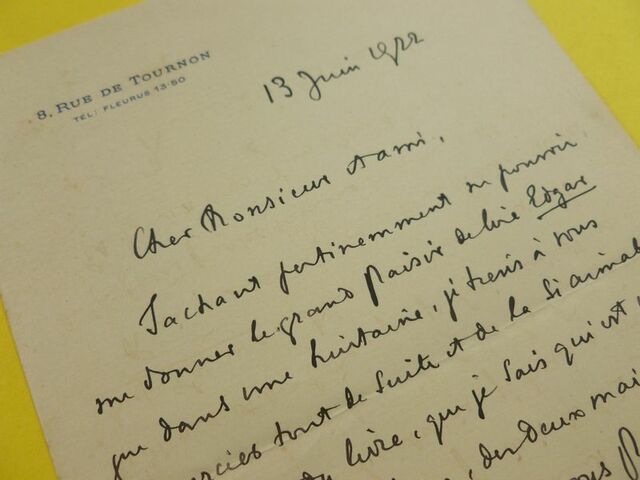 8, RUE DE TOURNON
TEL: FLEURUS 13-50
13 Juin 1922
Cher Monsieur et ami,
Sachant pertinemment ne pouvoir
me donner le grand plaisir de lire Edgar
que dans une huitaine, je tiens à vous
tout de suite et de la si aimab
du livre, que je sais qui est
des deux mai